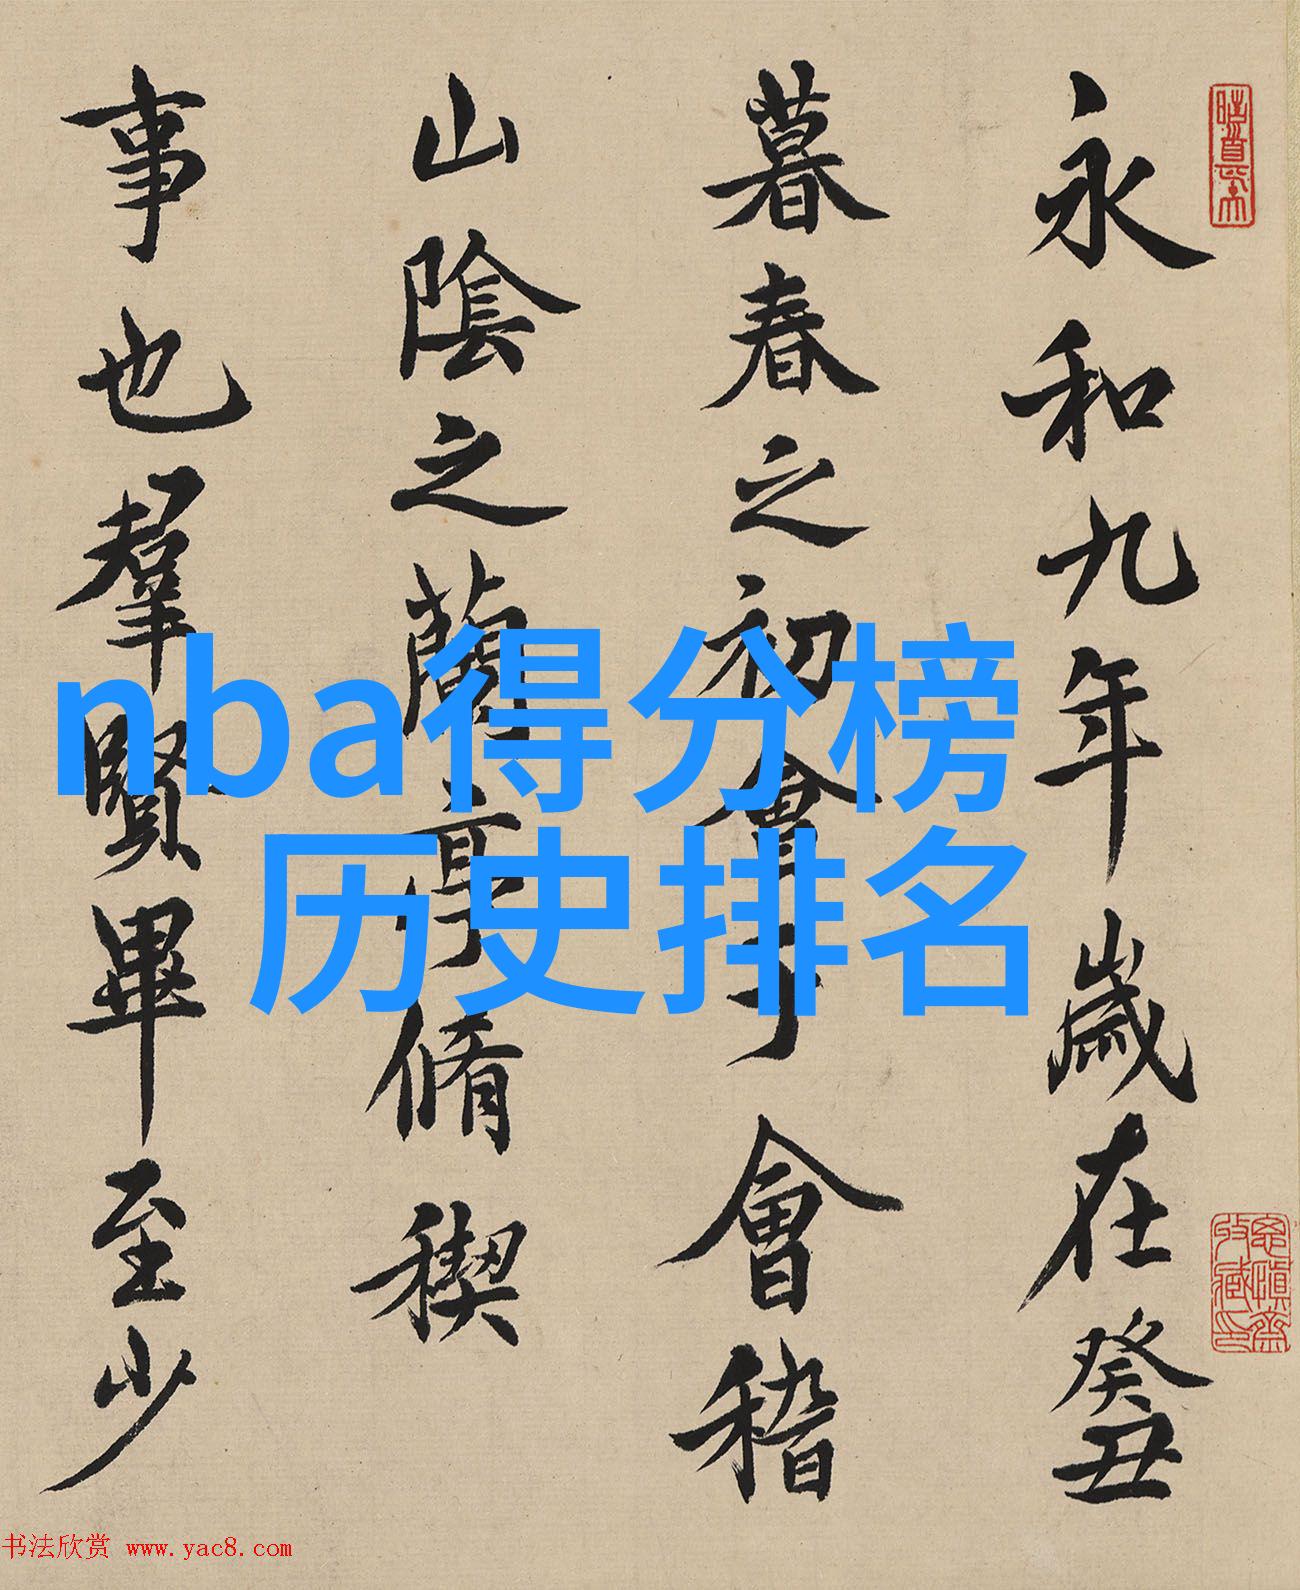 永和九年歲在癸丑
暮春之初會于會稽
山陰之蘭亭脩稧
事也羣賢畢至少
nba得分榜
历史排名
书法欣赏 www.yac8.com